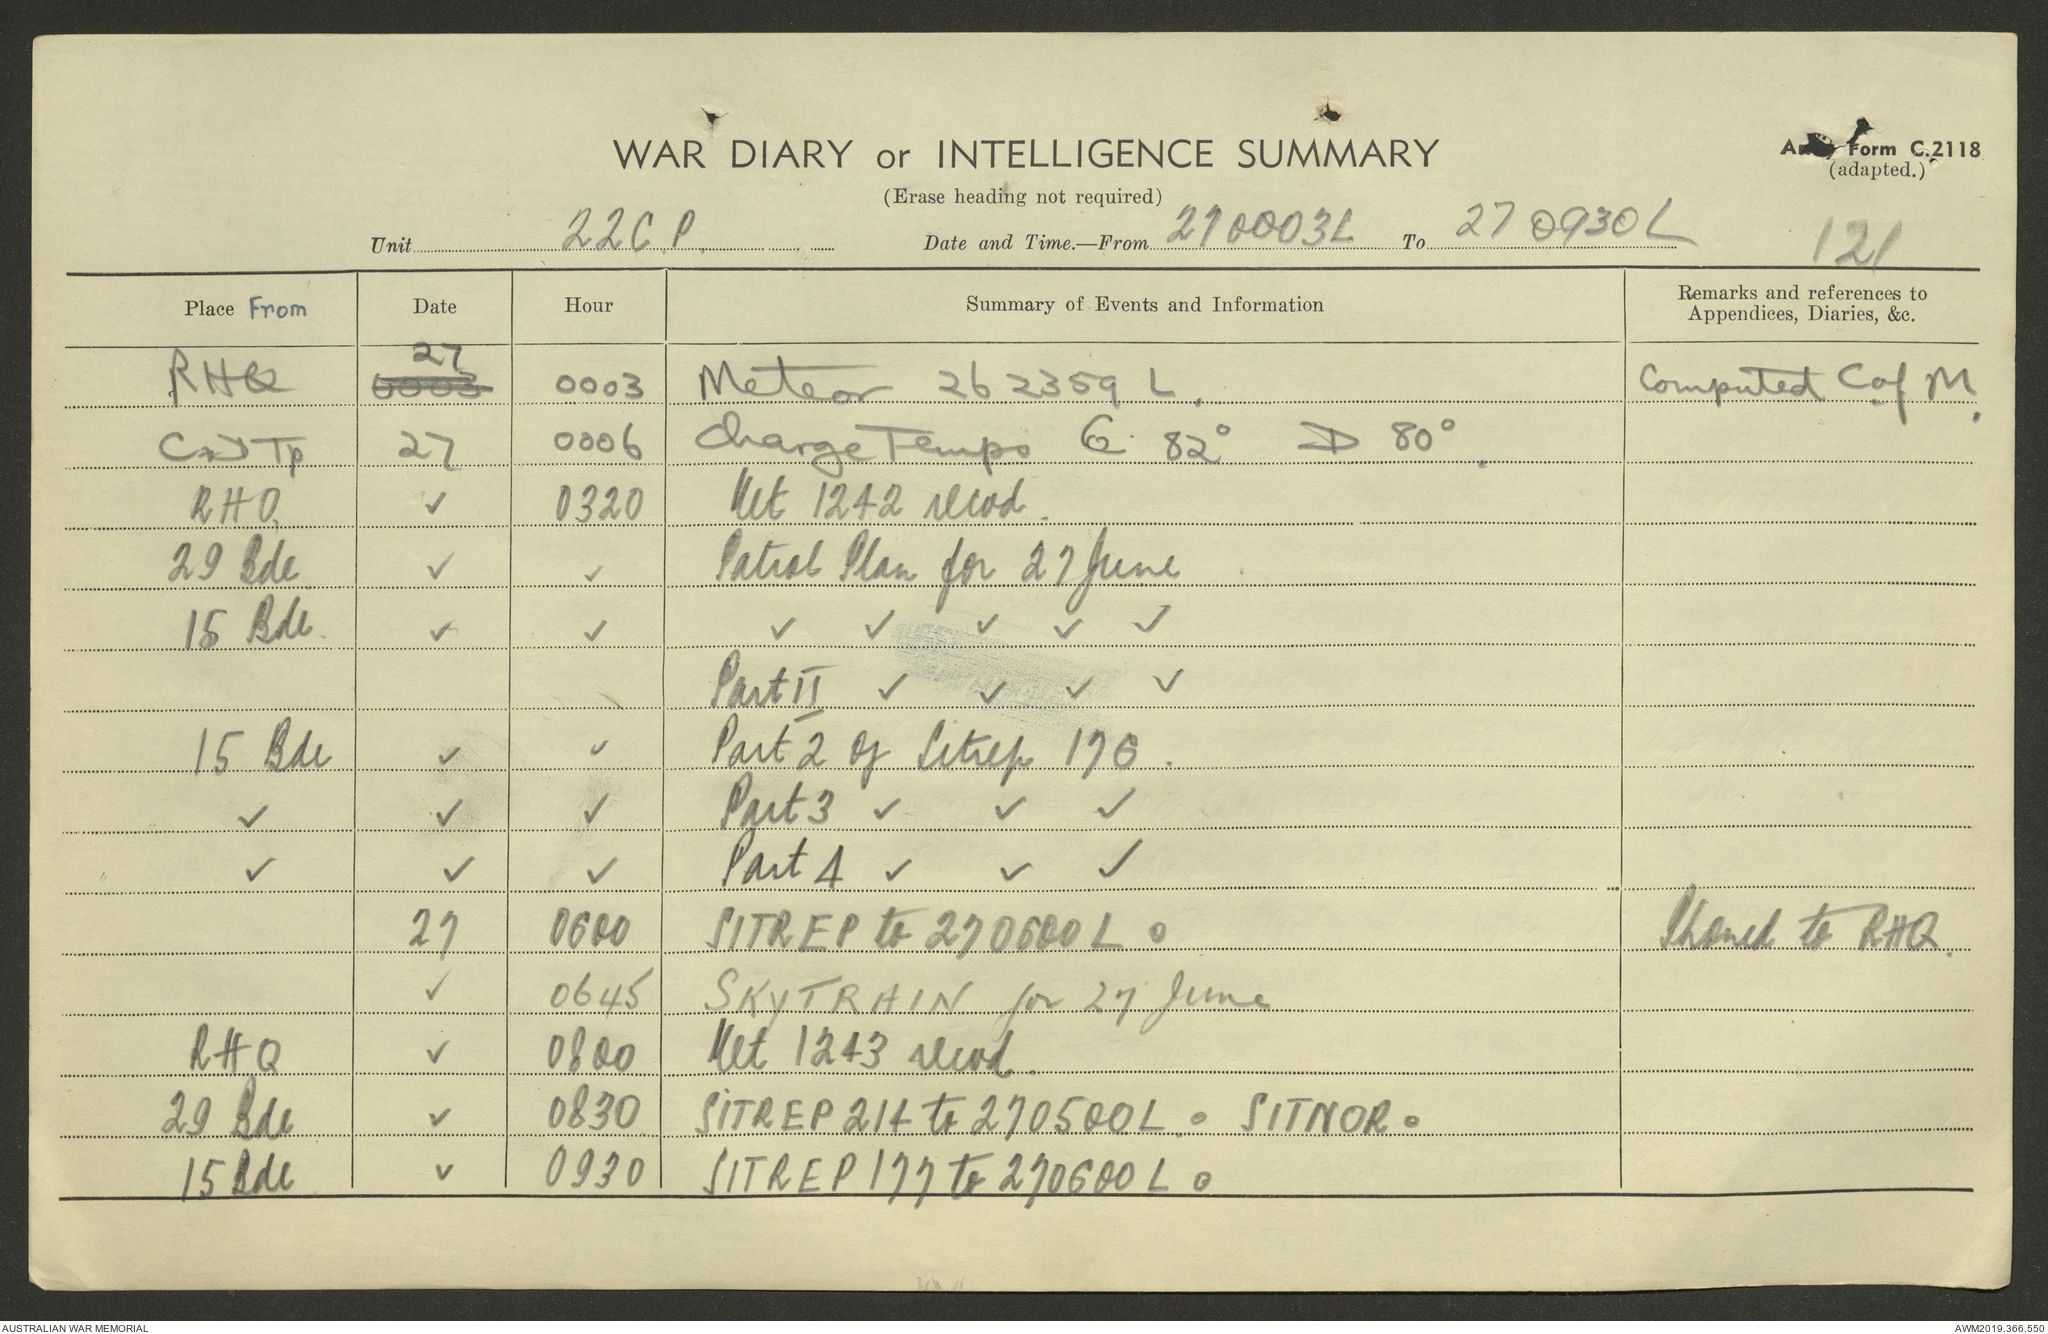 WAR DIARY or INTELLIGENCE SUMMARY
Army Form C.2118
(adapted.)
(Erase heading not required)
Unit 22 C.P. Date and Time.—From 270003L To 270930L 121
Place From Date Hour Summary of Events and Information Remarks and references to Appendices, Diaries, &c.
RHQ 0003 27 0003 Meteor 262359L. Computed C of M.
C Tp 27 0006 Charge Temps C 82° D 80°.
RHQ ✓ 0320 Met 1242 recvd.
29 Bde ✓ ✓ Patrol Plan for 27 June
15 Bde. ✓ ✓ ✓ ✓ ✓ ✓ ✓
Part II ✓ ✓ ✓ ✓
15 Bde ✓ ✓ Part 2 of Sitrep 176.
✓ ✓ ✓ Part 3 ✓ ✓ ✓
✓ ✓ ✓ Part 4 ✓ ✓ ✓
27 0600 SITREP to 270600L. Phoned to RHQ.
✓ 0645 SKYTRAIN for 27 June
RHQ ✓ 0800 Met 1243 recvd.
29 Bde ✓ 0830 SITREP 214 to 270500L. SITNOR.
15 Bde ✓ 0930 SITREP 177 to 270600L.
AUSTRALIAN WAR MEMORIAL
AWM2019.366.550